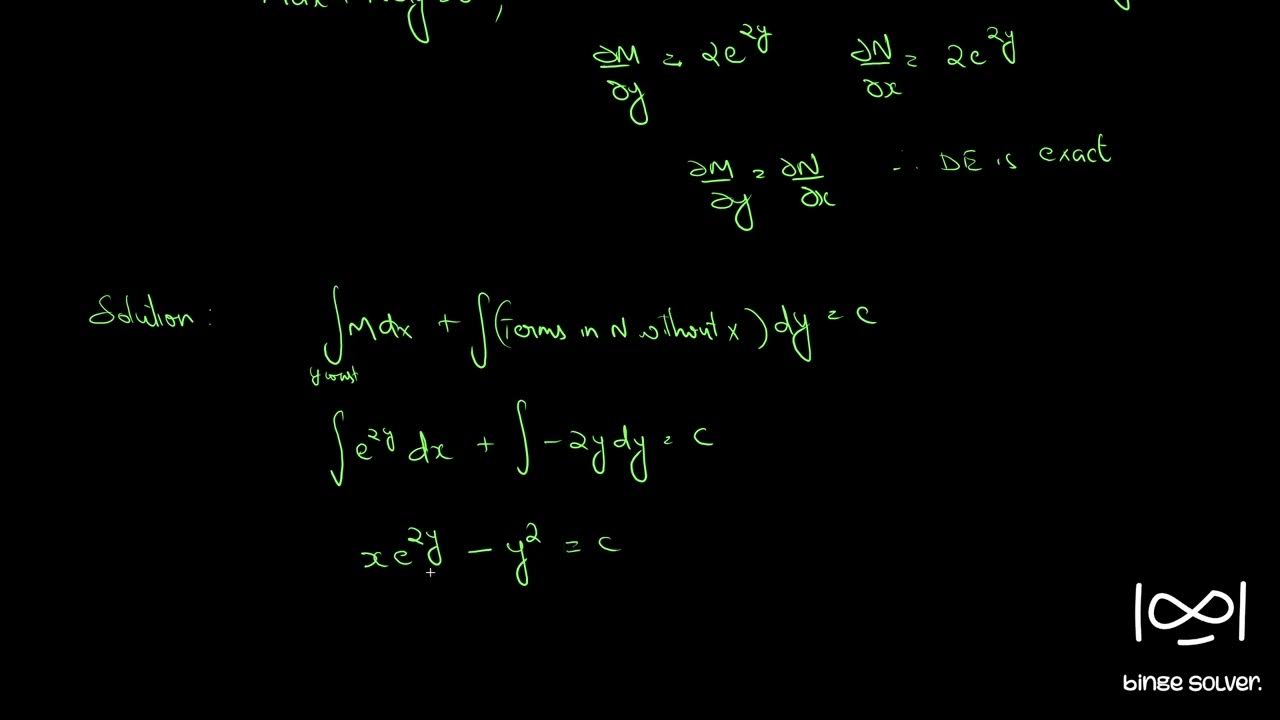 ∂M/∂y = 2e^{2y} ∂N/∂x = 2e^{2y}
∂M/∂y = ∂N/∂x ∴ DE is exact
Solution : ∫ Mdx + ∫(Terms in N without x) dy = c
y const
∫ e^{2y} dx + ∫ -2y dy = c
xe^{2y} - y² = c
binge solver.